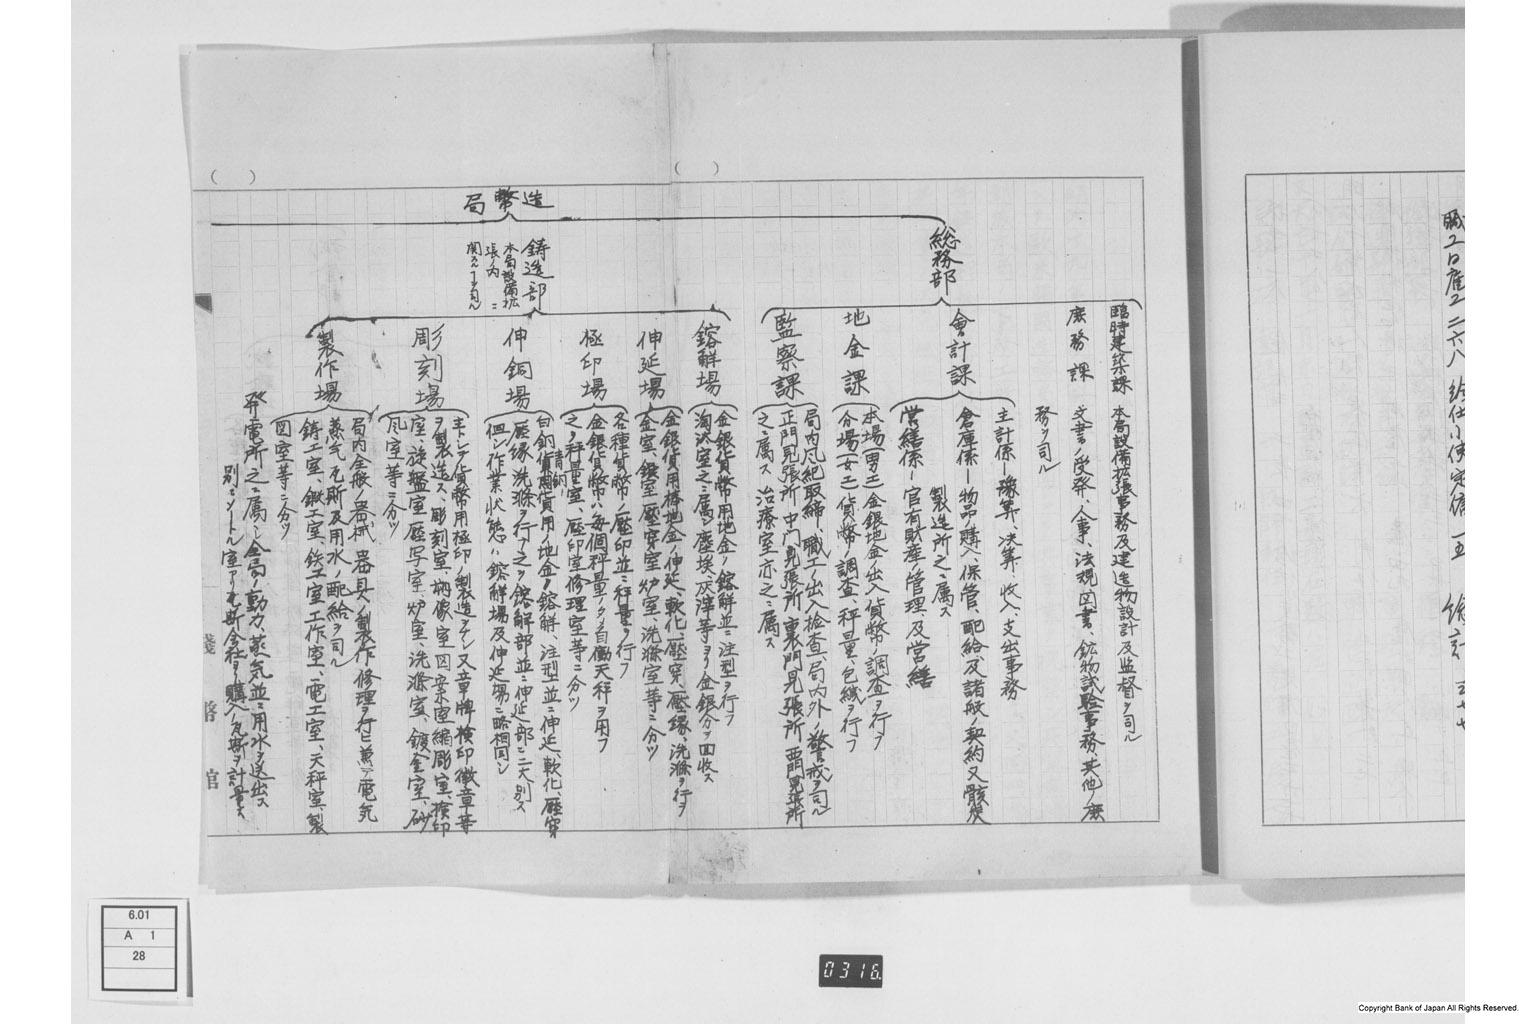 職工日産工 二六八 給仕小使定備 一五 総計 三七七
造幣局
総務部
臨時建築課
本局設備拡張事務及建造物設計及監督ヲ司ル
庶務課
文書ノ受発、人事、法規図書、鉱物試験事務、其他ノ庶
務ヲ司ル
會計課
主計係―豫算、決算、収入、支出事務
倉庫係―物品ノ購入、保管、配給及諸般ノ契約又骸炭
製造所之ニ属ス
営繕係―官有財産ノ管理及営繕
地金課
本場(男工)金銀地金ノ出入貨幣ノ調査ヲ行フ
分場(女工)貨幣ノ調査、秤量、包緘ヲ行フ
監察課
局内凡紀取締、職工ノ出入検査、局内外ノ警戒ヲ司ル
正門見張所 中門見張所 裏門見張所 西門見張所
之ニ属ス 治療室亦之ニ属ス
鋳造部
本局設備拡
張ノ内ニ
関スルコトヲ司ル
鎔解場
金銀貨幣用地金ノ鎔解並ニ注型ヲ行フ
淘汰室之ニ属シ塵埃、灰滓等ヨリ金銀分ヲ回收ス
伸延場
金銀貨用棒地金ノ伸延、軟化、壓穿、壓縁、洗滌ヲ行フ
金室、鍛室、壓穿室、炉室、洗滌室等ニ分ツ
極印場
各種貨幣ノ壓印並ニ秤量ヲ行フ
金銀貨幣ハ毎個秤量シ自働天秤ヲ用フ
之ヲ秤量室、壓印室修理室等ニ分ツ
伸銅場
白銅貨青銅貨用ノ地金ノ鎔解、注型並ニ伸延、軟化、壓穿
壓縁、洗滌ヲ行フ 之ヲ鎔解部並ニ伸延部ニ大別ス
但シ作業状態ハ鎔解場及伸延場ニ略相同シ
彫刻場
主トシテ貨幣用極印ノ製造ヲナシ又章牌検印徽章等
ヲ製造ス、彫刻室、塑像室図案室縮彫室、検印
室、旋盤室 壓写室、炉室、洗滌室、鍍金室、砂
凡室等ニ分ツ
製作場
局内全般ノ器械、器具ノ製作修理ヲ行ヒ兼テ電気
蒸气瓦斯及用水ノ配給ヲ司ル
鋳工室、鍛工室、鉄工室工作室、電工室、天秤室、製
図室等ニ分ツ
発電所之ニ属シ全局ノ動力、蒸気並ニ用水ヲ送出ス
別ニメートル室アリ瓦斯会社ヨリ購入ノ瓦斯ヲ計量ス
6.01
A 1
28
0316.
Copyright Bank of Japan All Rights Reserved.